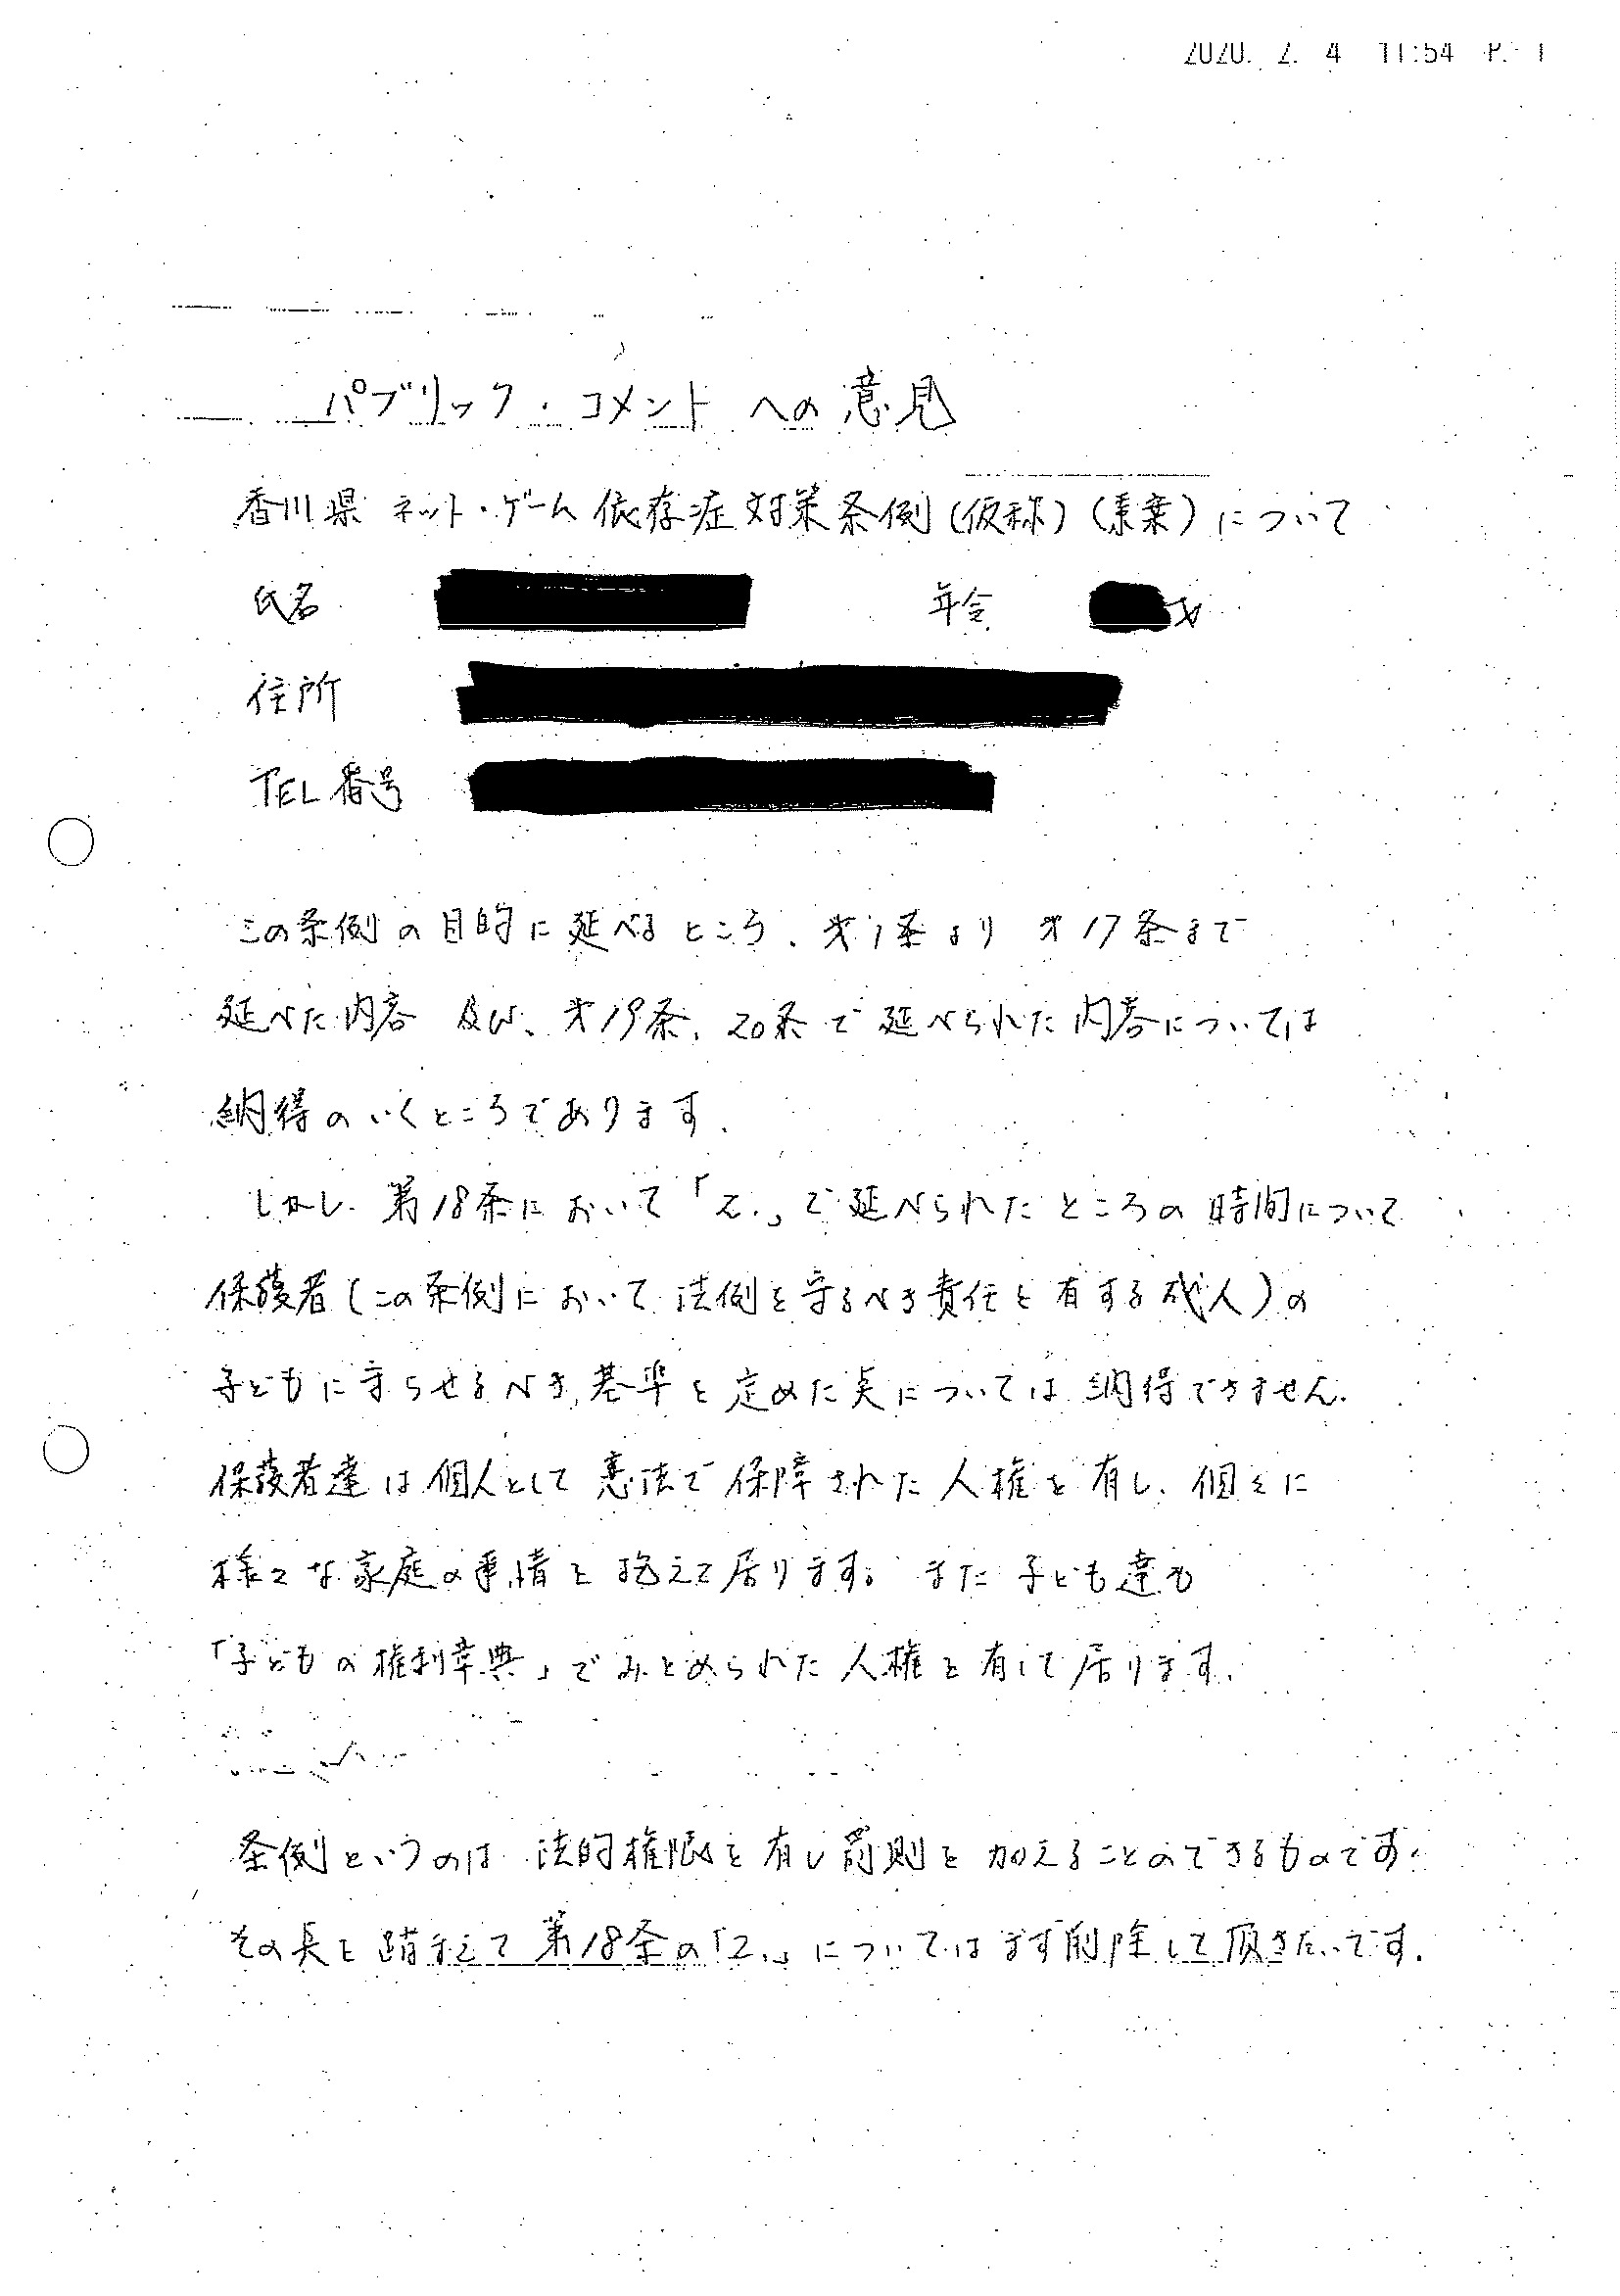 2020. 2. 4 11:54 P. 1
パブリック・コメントへの意見
香川県ネット・ゲーム依存症対策条例(仮称)(素案)について
氏名 年令 才
住所
TEL番号
この条例の目的に延べるところ、才1条より才17条まで
延べた内容 及び、才19条、20条で延べられた内容については
納得のいくところであります。
しかし、第18条において「2.」で延べられたところの時間について
保護者(この条例において法例を守るべき責任を有する成人)の
子どもに守らせるべき基準を定めた点については納得できません。
保護者達は個人として憲法で保障された人権を有し、個々に
様々な家庭の事情を抱えて居ります。また子ども達も
「子どもの権利章典」でみとめられた人権を有して居ります。
条例というのは法的権限を有し罰則を加えることのできるものです。
その点を踏まえて第18条の「2.」についてはまず削除して頂きたいです。